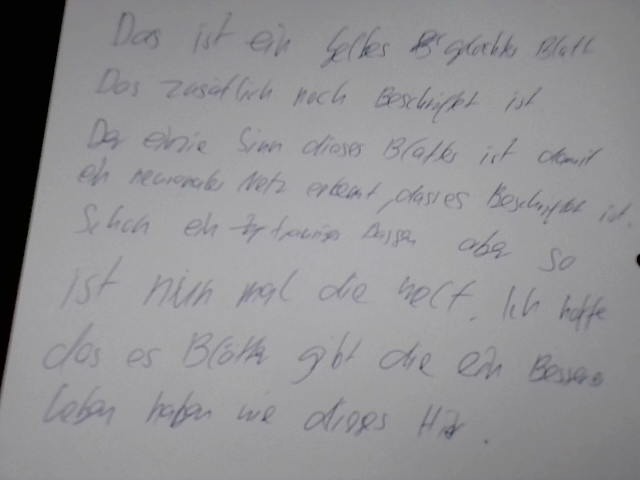 Das ist ein gelbes gelochtes Blatt
Das zusätlich noch Beschriftet ist
Der einzie Sinn dieses Blattes ist damit
ein neuronales Netz erkennt, dass es Beschriftet ist.
Schon ein trauriges aber so
ist nun mal die welt. Ich hoffe
das es Blätter gibt die ein Besseres
leben haben wie dieses Hier.